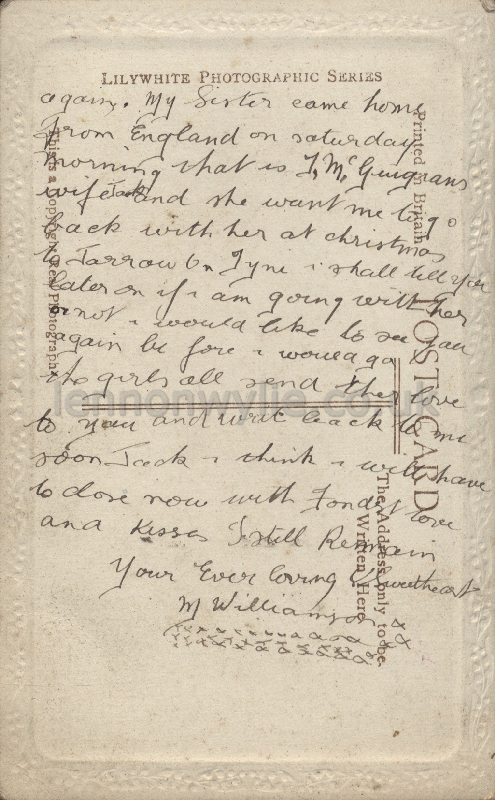 LILYWHITE PHOTOGRAPHIC SERIES
again. My Sister came home
from England on saturday
morning that is J, McGuigans
wife Jack and she want me to go
back with her at christmas
to Jarrow On Tyne i shall tell you
later on if i am going with her
or not i would like to see you
again be fore i would go
the girls all send ther love
to you and writ back to me
soon Jack i think i will have
to close now with Fondest love
and Kisses I still Remain
Your Ever loving Sweetheart
M Williamson x x
This is a Copyright Real Photograph
Printed in Britain
POST CARD
The Address only to be
Written Here
lennonwylie.co.uk